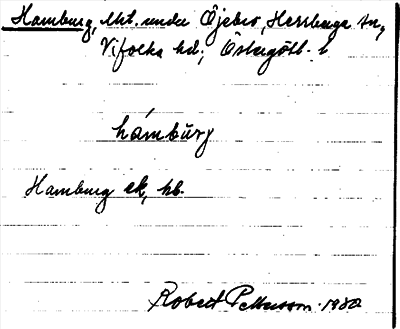 Hamburg, lht. under Öjebro, Herrberga sn,
Vifolka hd; Östergötl. l
hámbürj
Hamburg ek, kb.
Robert Pettersson 1980